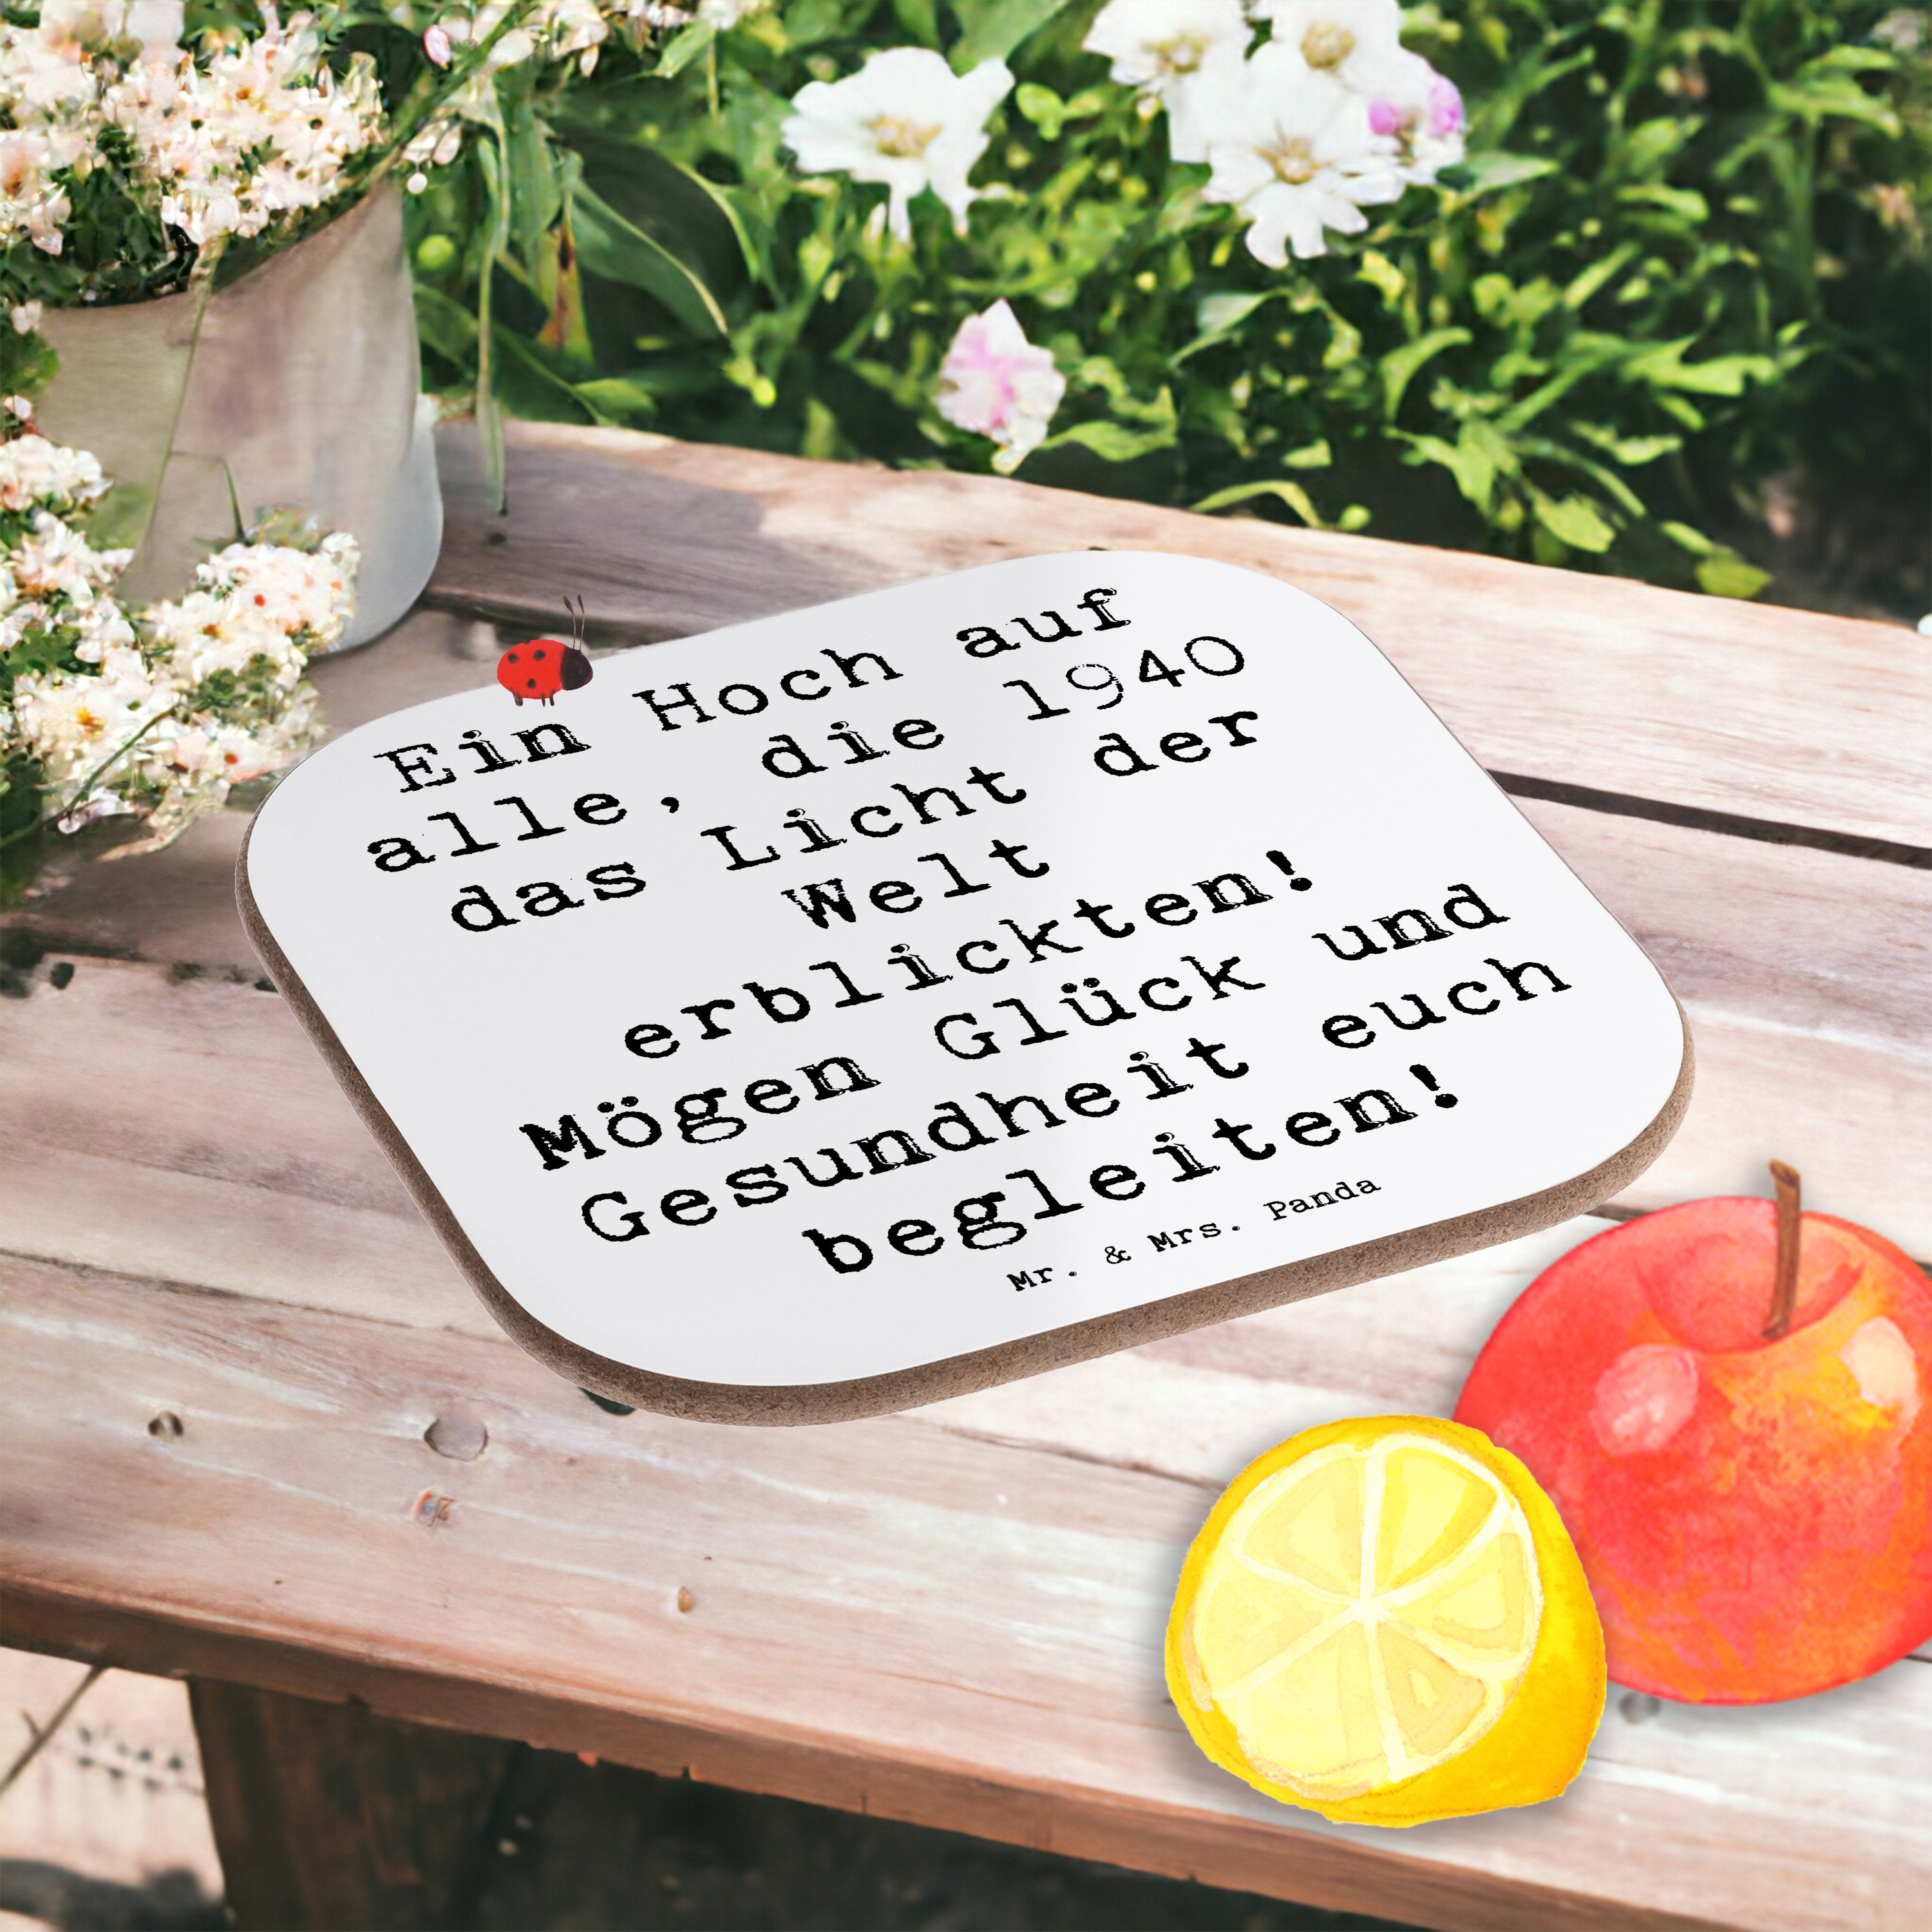 Ein Hoch auf
alle, die 1940
das Licht der
Welt
erblickten!
Mögen Glück und
Gesundheit euch
begleiten!
Mr. & Mrs. Panda